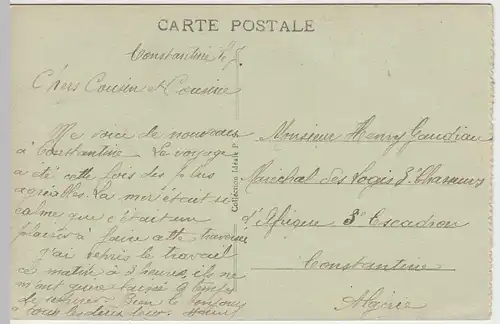 CARTE POSTALE
Constantine
Chers Cousin et Cousine
Me voici de nouveau
à Constantine Le voyage
a été cette fois des plus
agréables. La mer était si
calme que c'était un
plaisir à faire cette traversée
j'ai repris le travail
ce matin à 3 heures, ils ne
m'ont que laissé 9 heures
de Bien le bonjour
à tous les deux
Collection Idéale P.
Monsieur Henry
Maréchal des Logis 3e Chasseurs
d'Afrique 3e Escadron
Constantine
Algérie